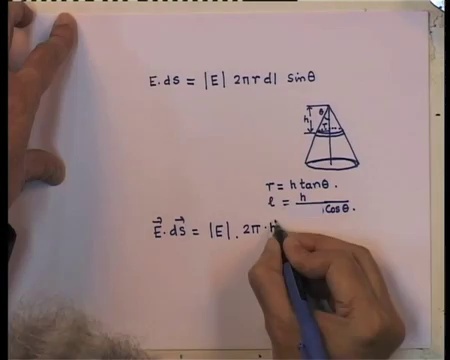 E. ds = |E| 2πr dl sinθ
h
θ
r
r = h tanθ.
l = h / Cosθ.
E⃗. ds⃗ = |E| . 2π . h